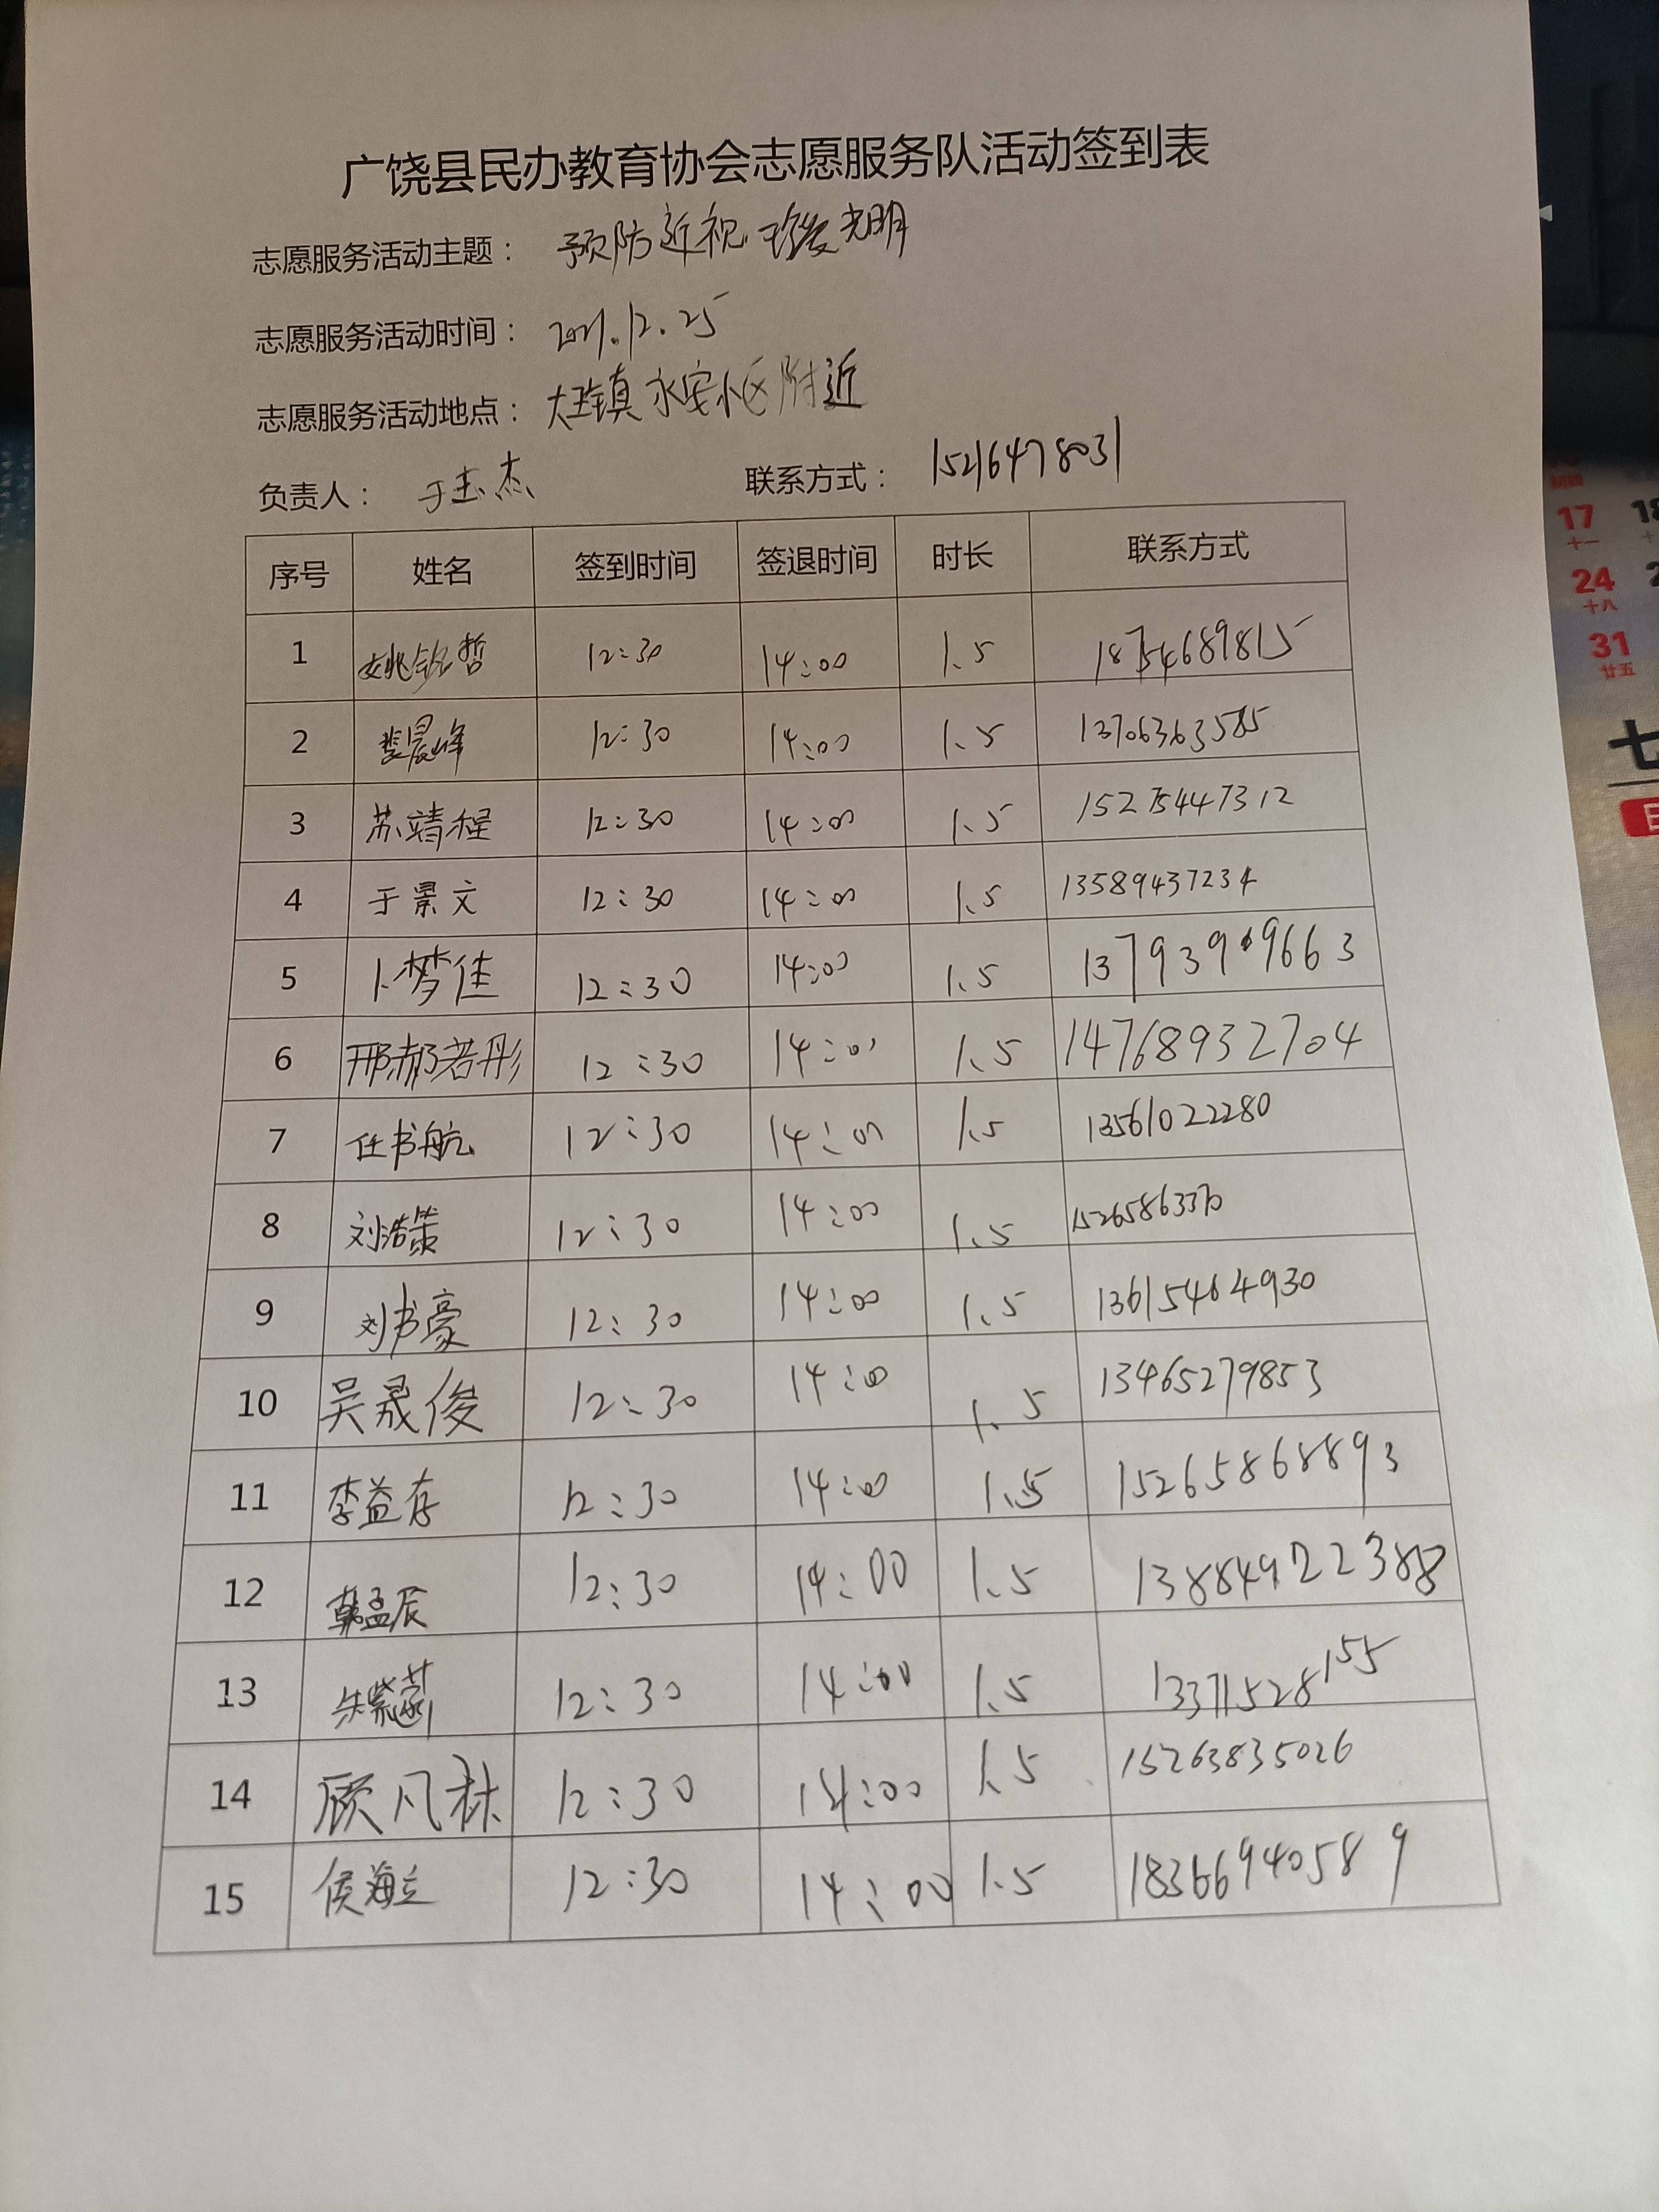 广饶县民办教育协会志愿服务队活动签到表
志愿服务活动主题： 预防近视 珍爱光明
志愿服务活动时间： 2021.12.25
志愿服务活动地点： 大王镇永安小区附近
负责人： 于玉杰 联系方式： 15216478031
序号 姓名 签到时间 签退时间 时长 联系方式
1 姚铭哲 12:30 14:00 1.5 18754689815
2 晨峰 12:30 14:00 1.5 13706363585
3 苏靖程 12:30 14:00 1.5 15275447312
4 于景文 12:30 14:00 1.5 13589437234
5 卜梦佳 12:30 14:00 1.5
6 邢郝若彤 12:30 14:00 1.5 14768932704
7 任书航 12:30 14:00 1.5 13561022280
8 刘浩策 12:30 14:00 1.5
9 刘书豪 12:30 14:00 1.5 13615464930
10 吴晟俊 12:30 14:00 1.5 13465279853
11 李益存 12:30 14:00 1.5 15265868893
12 韩孟辰 12:30 14:00 1.5
13 朱紫 12:30 14:00 1.5 13371528155
14 顾凡林 12:30 14:00 1.5 15263835026
15 侯海立 12:30 14:00 1.5 18366940589
17
十一
24
十八
31
廿五
七